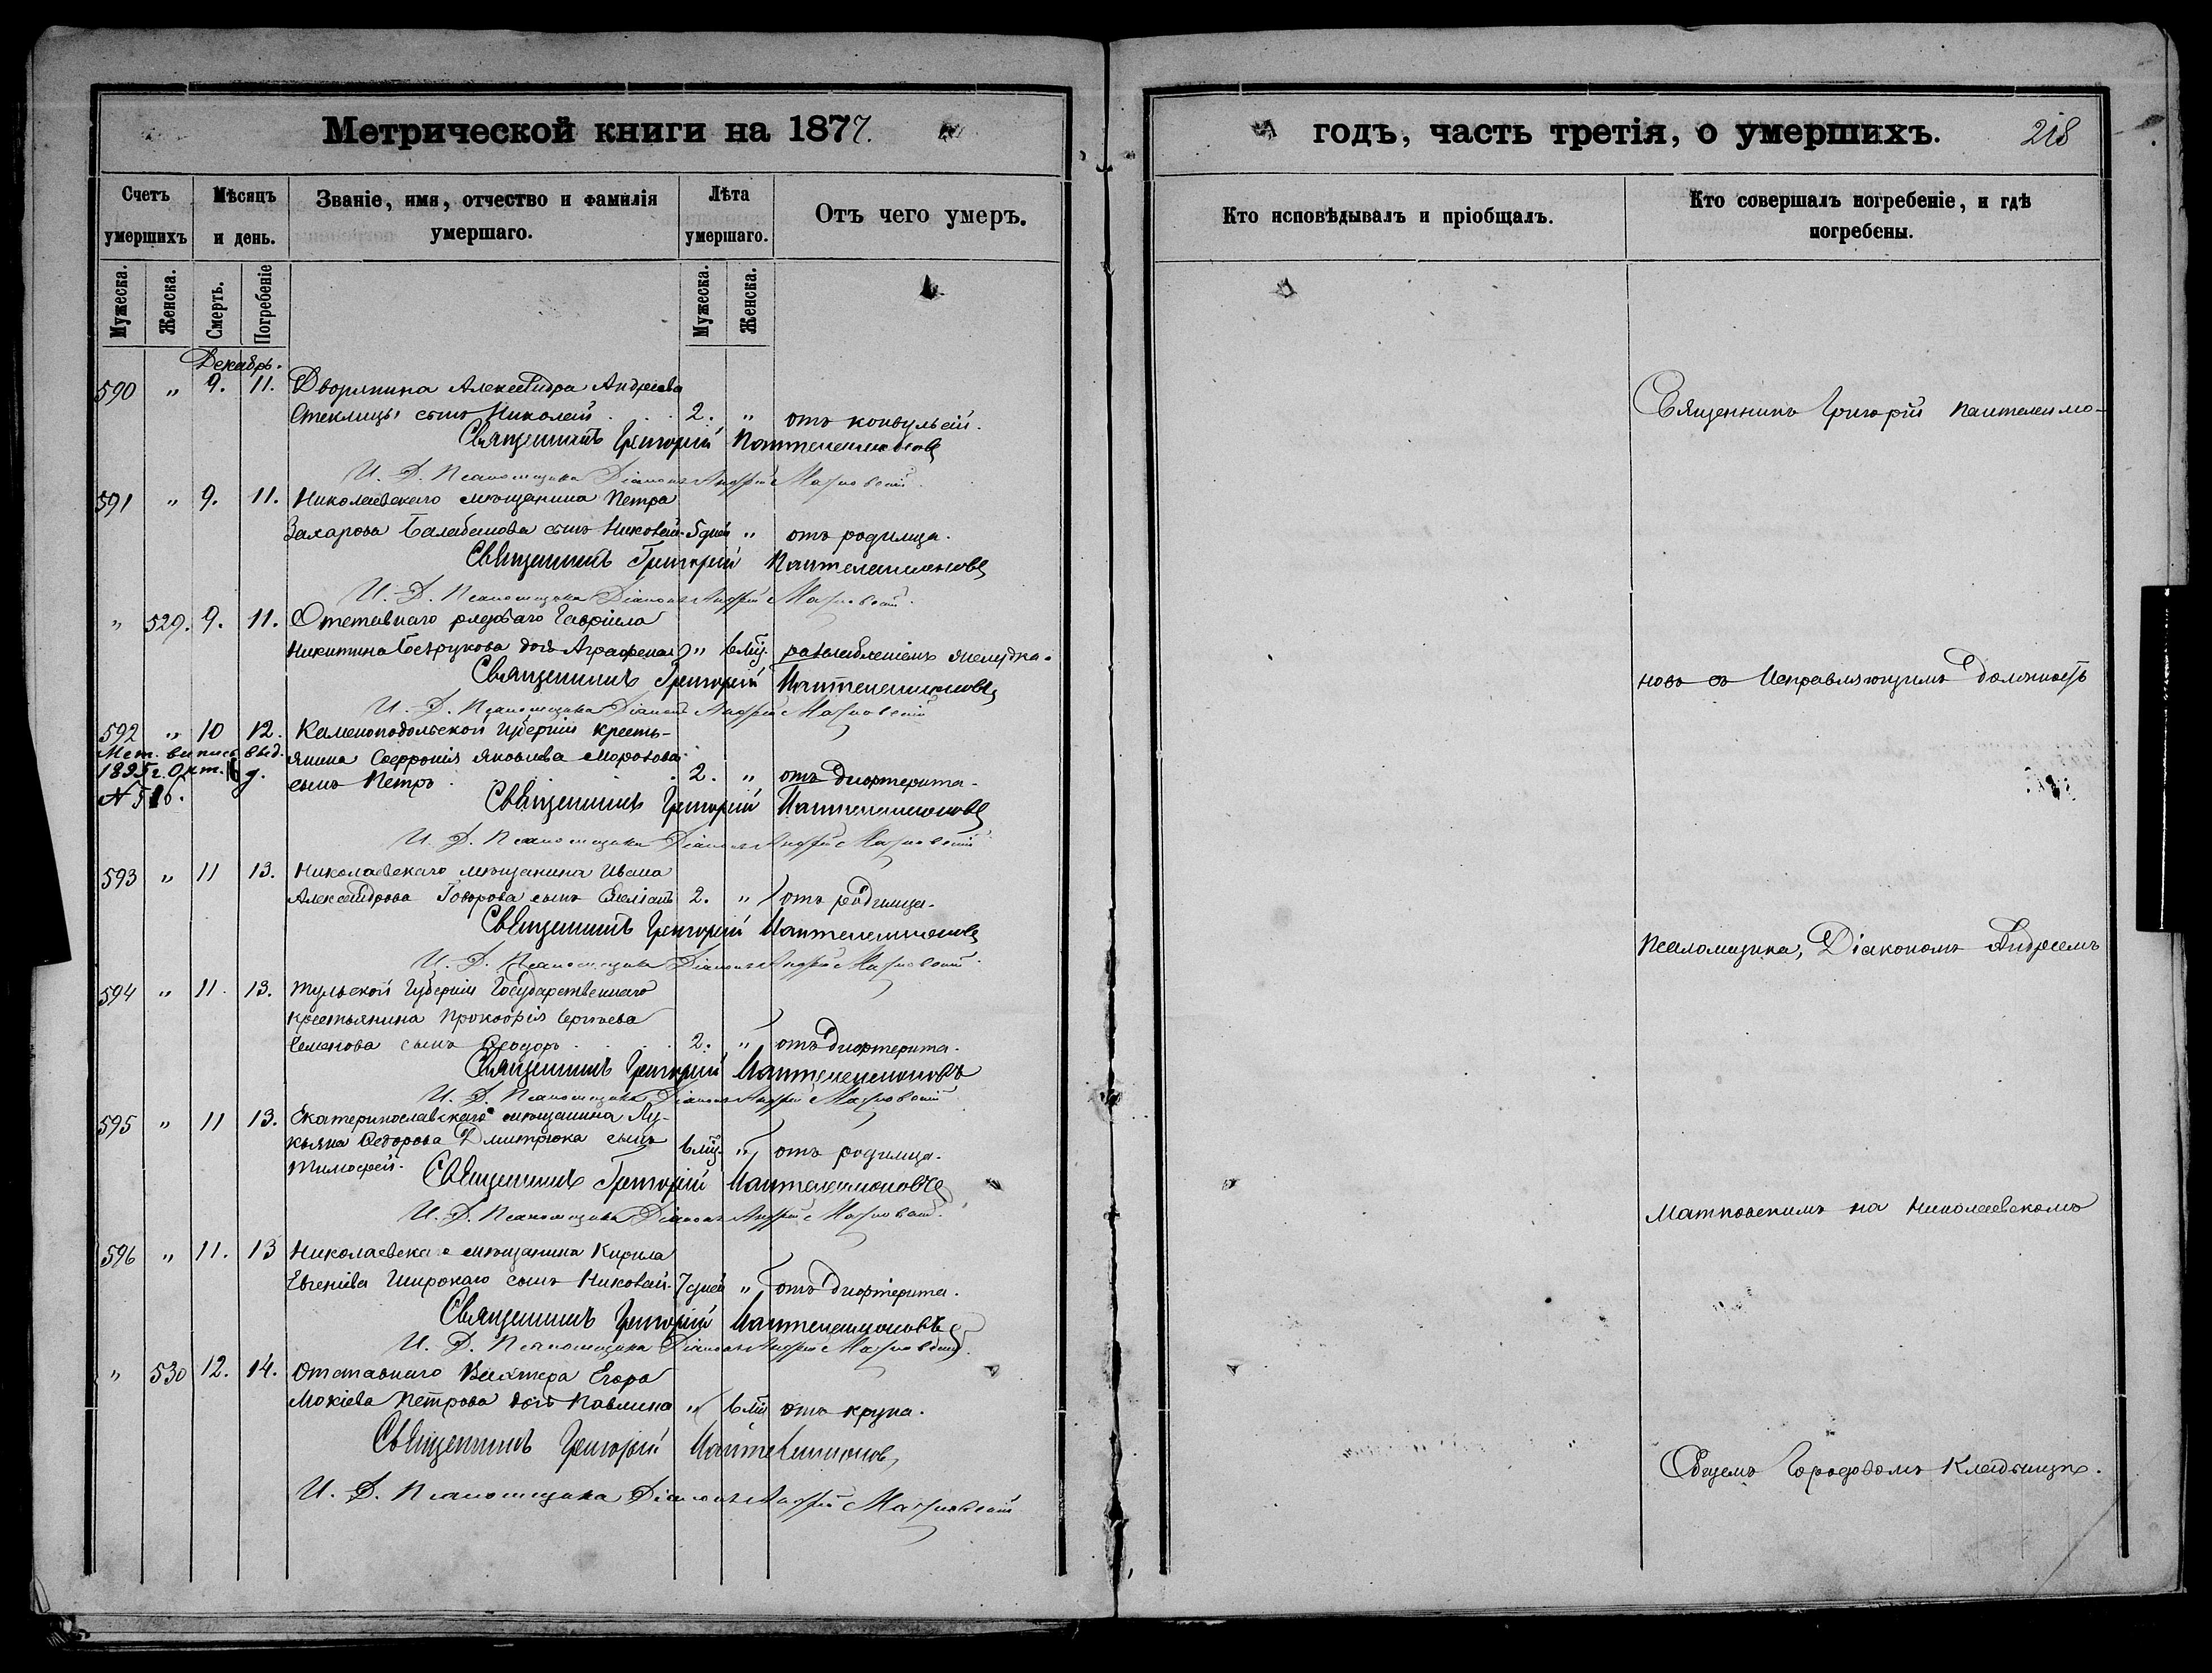 Метрической книги на 1877.
Счетъ умершихъ
Мѣсяцъ и день.
Званіе, имя, отчество и фамилія умершаго.
Лѣта умершаго.
Отъ чего умеръ.
Мужеска. Женска. Смерть. Погребеніе Мужеска. Женска.
Декабрь.
590 " 9. 11. Дворянина Александра Андреева
Стеклицы сынъ Николай 2. " отъ конвульсій.
Священникъ Григорій Пантелеимоновъ
И. Д. Псаломщика Діаконъ Андрей Матковскій
591 " 9. 11. Николаевскаго мѣщанина Петра
Захарова Балабанова сынъ Николай 5 дней " отъ родимца.
Священникъ Григорій Пантелеимоновъ
И. Д. Псаломщика Діаконъ Андрей Матковскій
" 529. 9. 11. Отставнаго рядоваго Гавріила
Никитина Безрукова дочь Аграфена " 6 мѣс. разслабленіемъ желудка.
Священникъ Григорій Пантелеимоновъ
И. Д. Псаломщика Діаконъ Андрей Матковскій
592 " 10 12. Каменоподольской губерніи кресть-
Мет. выпись выд. янина Софронія Яковлева Морозова
1895 г. Окт. 16 д. сынъ Петръ 2. " отъ дифтерита.
N 516. Священникъ Григорій Пантелеимоновъ
И. Д. Псаломщика Діаконъ Андрей Матковскій
593 " 11 13. Николаевскаго мѣщанина Ивана
Александрова Говорова сынъ 2. " отъ родимца.
Священникъ Григорій Пантелеимоновъ
И. Д. Псаломщика Діаконъ Андрей Матковскій
594 " 11. 13. Тульской губерніи Государственнаго
крестьянина Прокофія Сергѣева
Семенова сынъ Феодоръ 2. " отъ дифтерита.
Священникъ Григорій Пантелеимоновъ
И. Д. Псаломщика Діаконъ Андрей Матковскій
595 " 11 13. Екатеринославскаго мѣщанина Лу-
кьяна Федорова Дмитрюка сынъ 6 мѣс. " отъ родимца.
Тимофей. Священникъ Григорій Пантелеимоновъ
И. Д. Псаломщика Діаконъ Андрей Матковскій
596 " 11. 13 Николаевска о мѣщанина Кирила
Евгеніева Широкаго сынъ Николай 7 дней " отъ дифтерита.
Священникъ Григорій Пантелеимоновъ
И. Д. Псаломщика Діаконъ Андрей Матковскій
" 530 12. 14. Отставнаго Вахтера Егора
Мокіева Петрова дочь Павлина " 6 мѣс отъ крупа.
Священникъ Григорій Пантелеимонов
И. Д. Псаломщика Діаконъ Андрей Матковскій
годъ, часть третія, о умершихъ. 218
Кто исповѣдывалъ и пріобщалъ.
Кто совершалъ погребеніе, и гдѣ погребены.
Священникъ Григорій Пантелеимо-
новъ съ Исправляющимъ должность
Псаломщика, Діакономъ Андреемъ
Матковскимъ на Николаевскомъ
Общемъ Городовомъ Кладбищѣ.